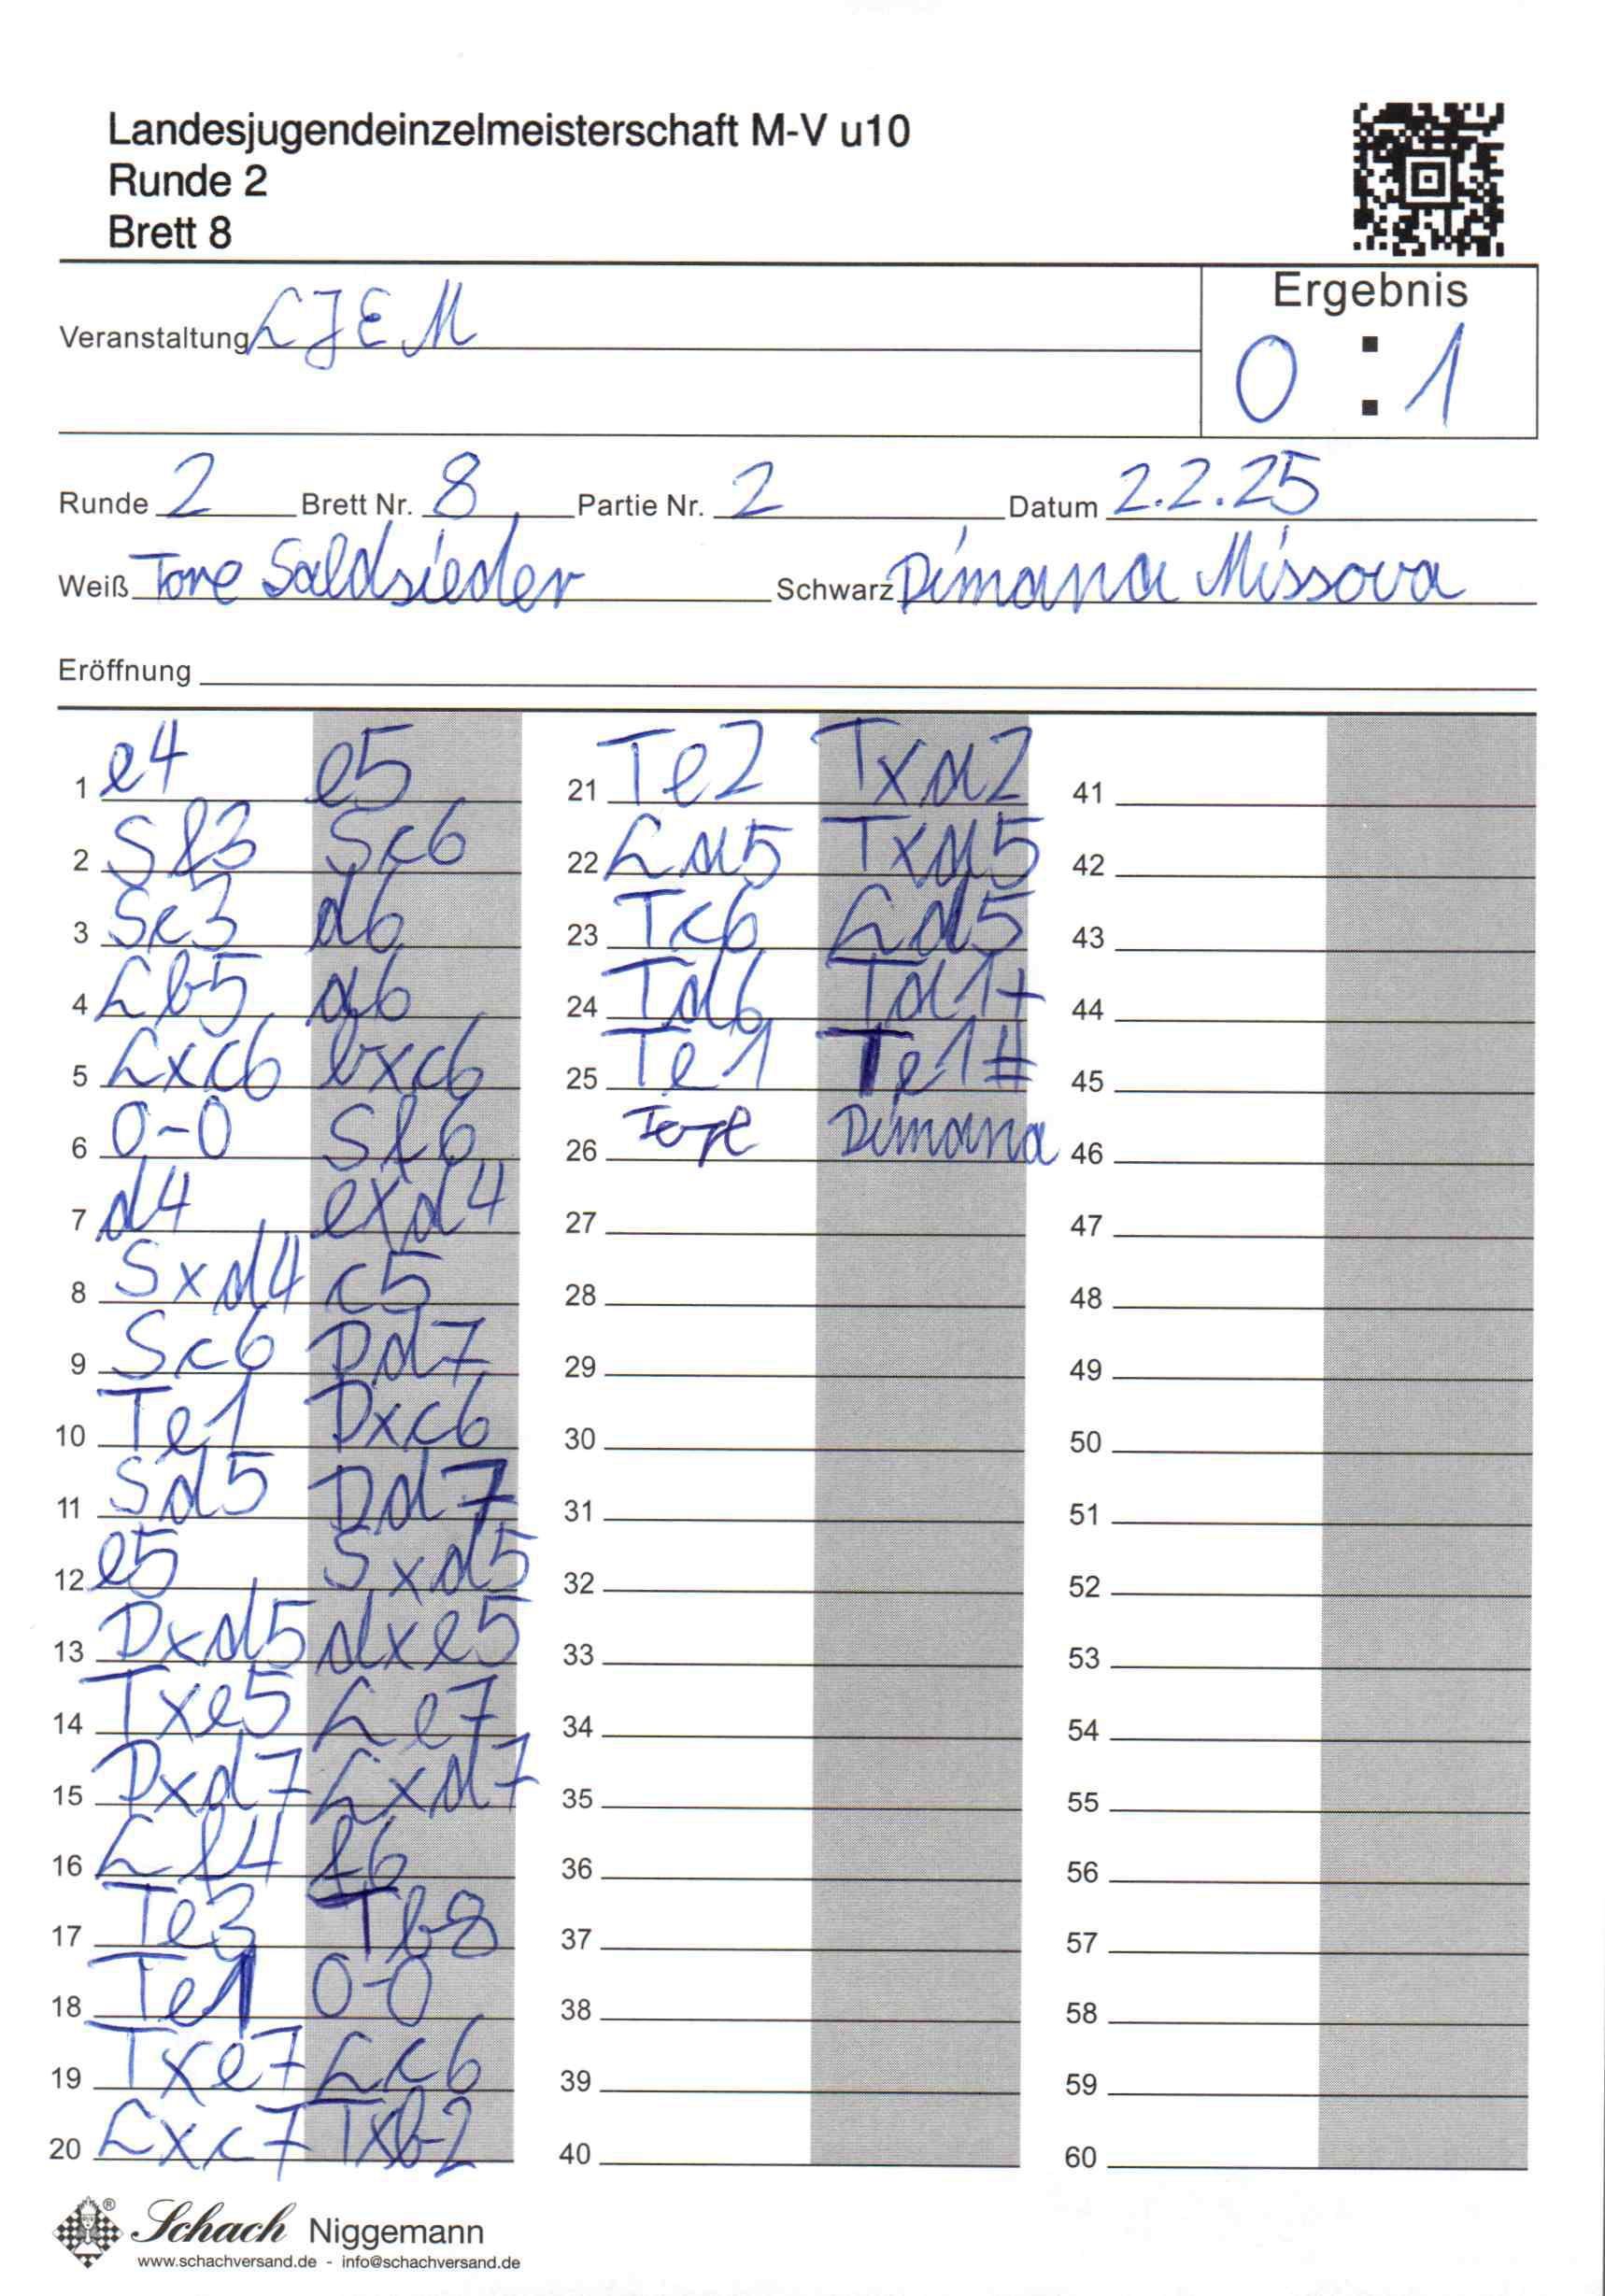 Landesjugendeinzelmeisterschaft M-V u10
Runde 2
Brett 8
Ergebnis
Veranstaltung LJEM
0 : 1
Runde 2 Brett Nr. 8 Partie Nr. 2 Datum 2.2.25
Weiß Tore Saldsieder Schwarz Dimana Missova
Eröffnung
1 e4 e5
2 Sf3 Sc6
3 Sc3 d6
4 Lb5 a6
5 Lxc6 bxc6
6 0-0 Sf6
7 d4 exd4
8 Sxd4 c5
9 Sc6 Dd7
10 Te1 Dxc6
11 Sd5 Dd7
12 e5 Sxd5
13 Dxd5 dxe5
14 Txe5 Le7
15 Dxd7 Lxd7
16 Lf4 f6
17 Te3 Tb8
18 Te1 0-0
19 Txe7 Lc6
20 Lxc7 Txb2
21 Te2 Txa2
22 La5 Txa5
23 Tc6 Ld5
24 Td6 Ta1+
25 Te1 Te1#
26 Tore Dimana
27
28
29
30
31
32
33
34
35
36
37
38
39
40
41
42
43
44
45
46
47
48
49
50
51
52
53
54
55
56
57
58
59
60
Schach Niggemann
www.schachversand.de - info@schachversand.de